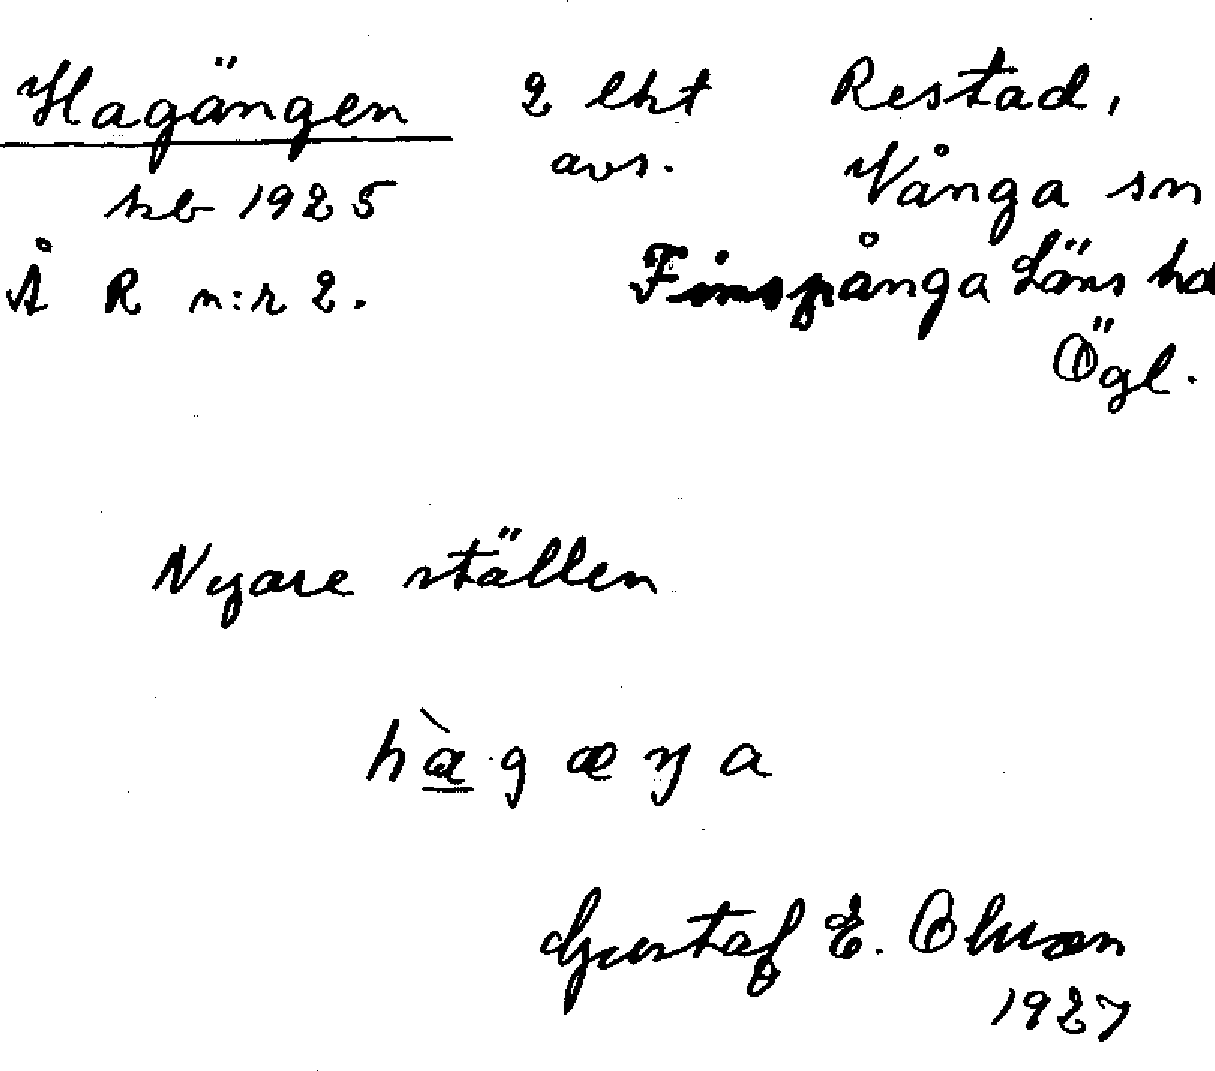 Hagängen 2 lht Restad,
avs. Vånga sn
kb 1925
Å R n:r 2. Finspånga Läns hd
Ögl.
Nyare ställen
hà̱gæŋa
Gustaf E. Olsson
1927